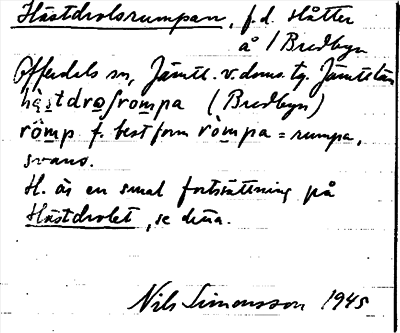 Hästdrolsrumpan, f.d. slåtter
å / Bredbyn
Offerdals sn, Jämtl. v. doms. tg. Jämtl. län
hästdro̲ʃrompa (Bredbyn)
römp f. best form ròmpa = rumpa,
svans.
H. är en smal fortsättning på
Hästdrolet, se detta.
Nils Simonsson 1945